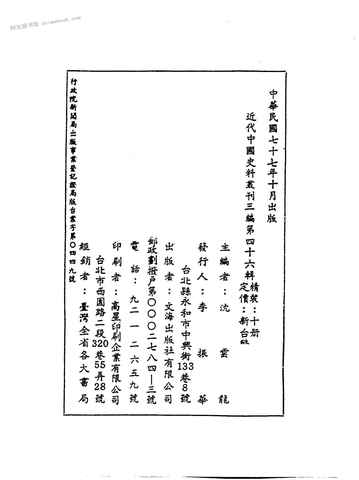 中華民國七十七年十月出版
近代中國史料叢刊三編第四十六輯
精裝：十冊
定價：新台
主編者：沈雲龍
發行人：李振華
台北縣永和市中興街133巷8號
出版者：文海出版社有限公司
郵政劃撥戶第〇〇〇二七八四—三號
電話：九二一二六五九號
印刷者：高星印刷企業有限公司
台北市西園路二段320巷55弄28號
經銷者：臺灣全省各大書局
行政院新聞局出版事業登記證局版台業字第〇四四九號